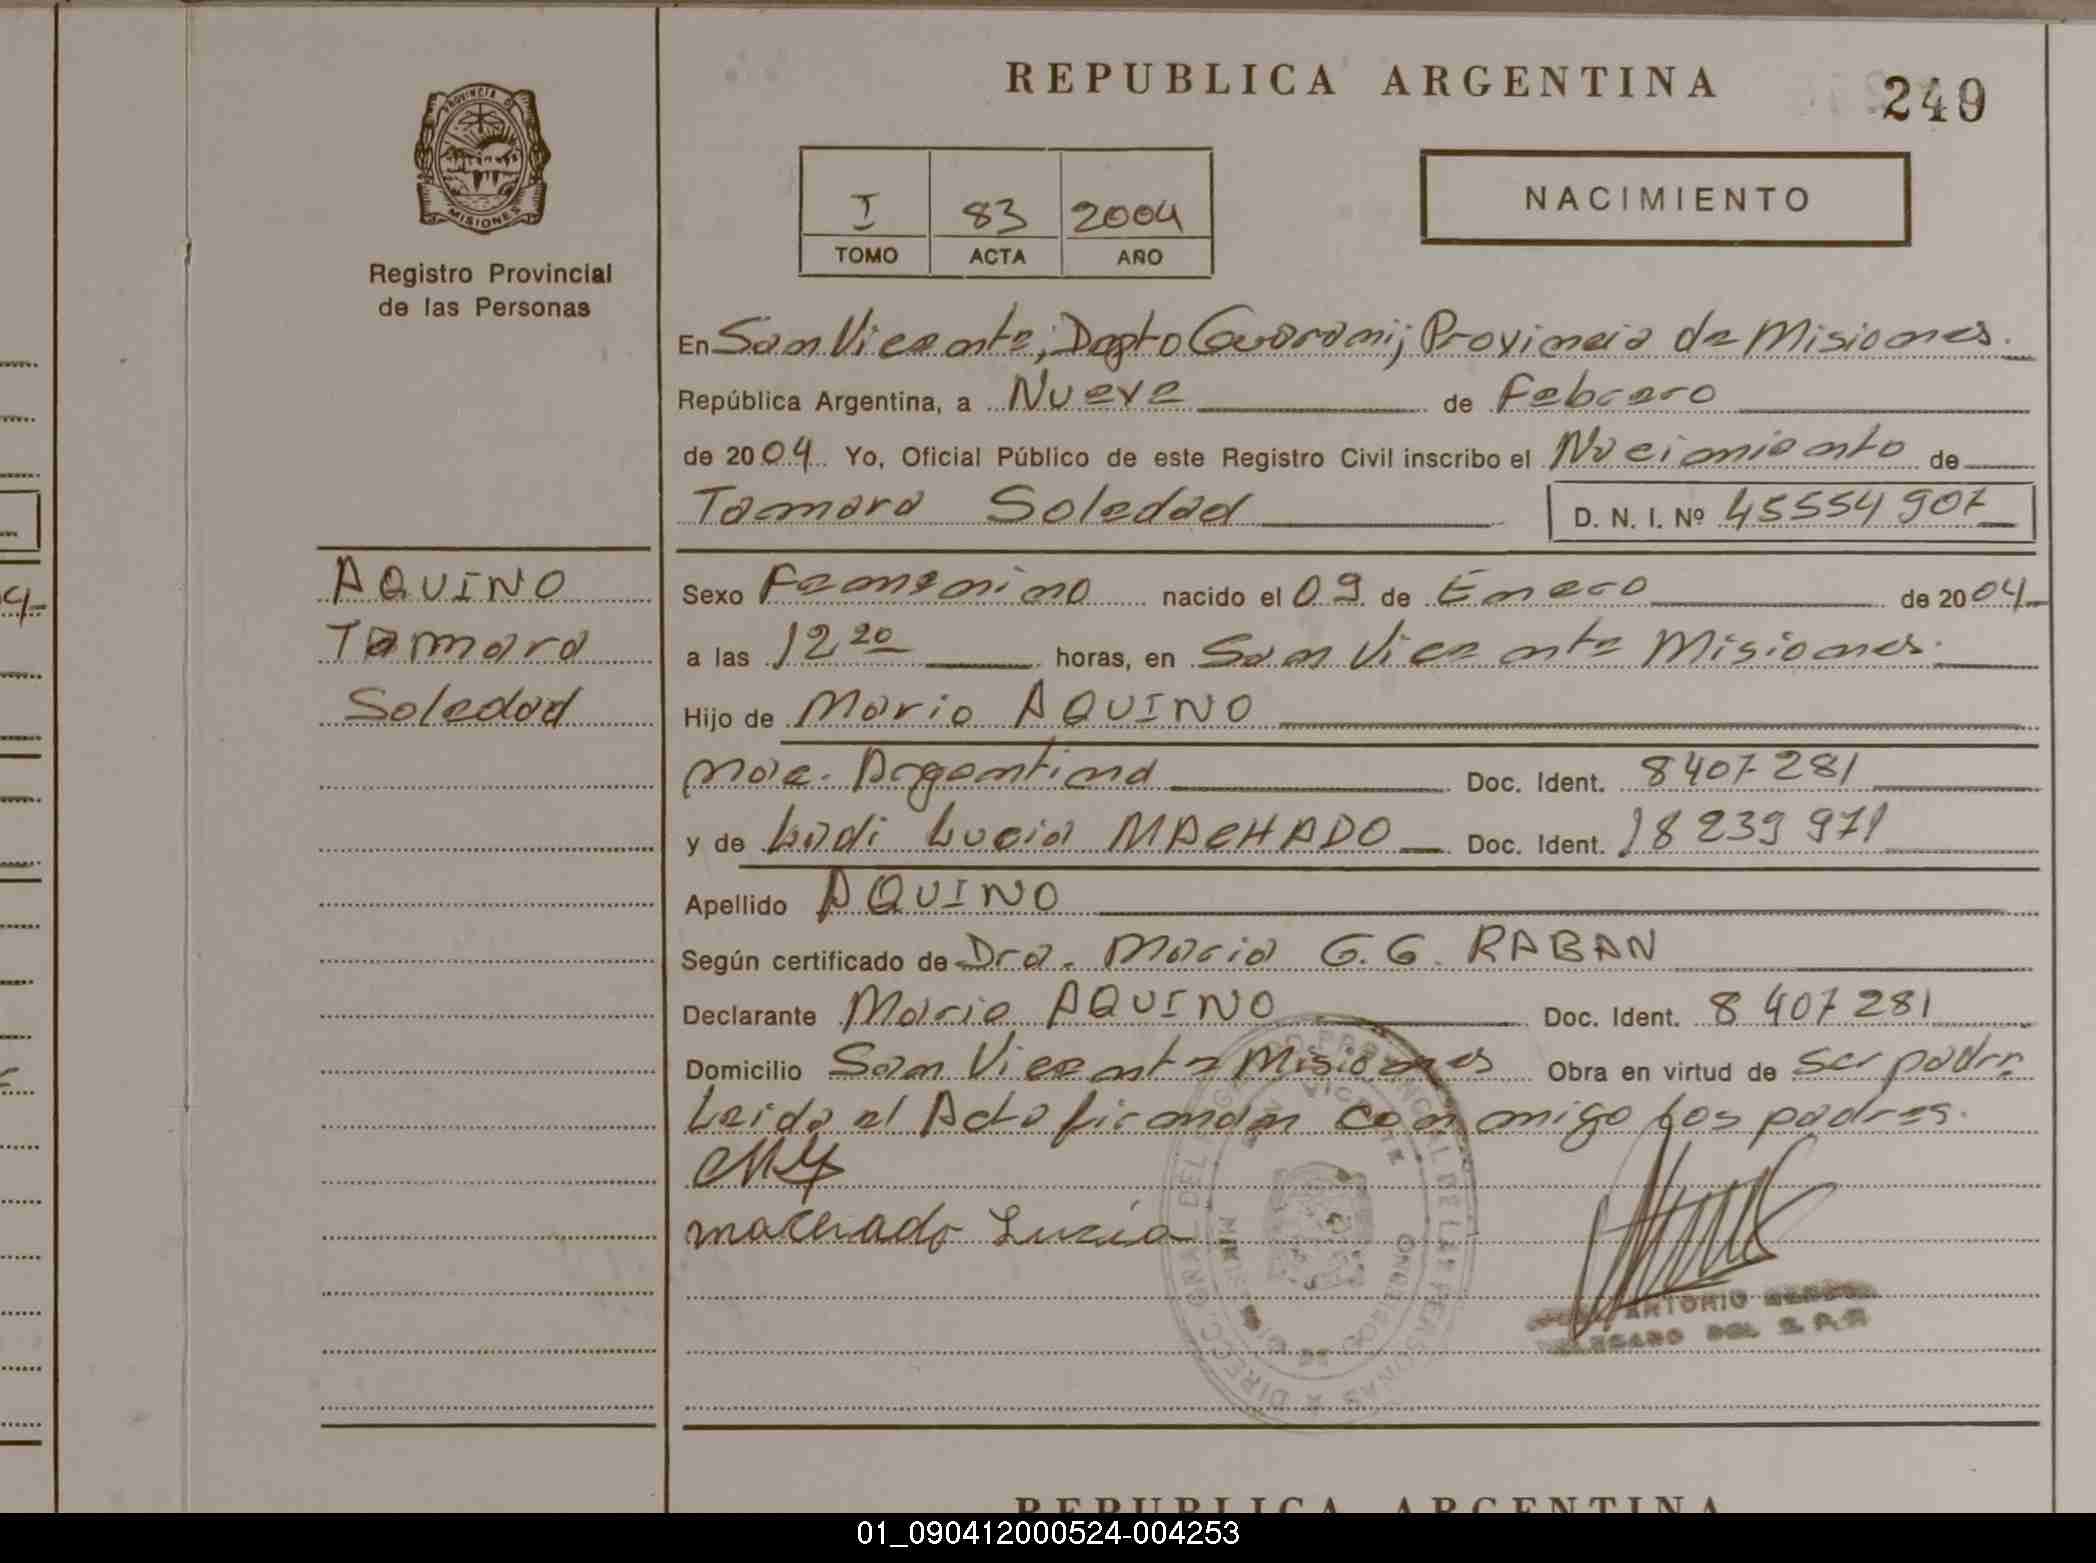 REPUBLICA ARGENTINA
249
PROVINCIA D
MISIONES
Registro Provincial
de las Personas
I 83 2004
TOMO ACTA AÑO
NACIMIENTO
En San Vicente, Dapto Guarani; Provincia de Misiones.
República Argentina, a Nueve de Febrero
de 2004 Yo, Oficial Público de este Registro Civil inscribo el Nacimiento de
Tamara Soledad D. N. I. Nº 45554907
AQUINO
Tamara
Soledad
Sexo Femenino nacido el 09 de Enero de 2004
a las 12 20 horas, en San Vicente Misiones.
Hijo de Mario AQUINO
Nac. Argentina Doc. Ident. 8407281
y de Ladi Lucia MACHADO Doc. Ident. 18239971
Apellido AQUINO
Según certificado de Dra. Maria G.G. RABAN
Declarante Mario AQUINO Doc. Ident. 8407281
Domicilio San Vicente Misiones Obra en virtud de ser padre
Leida el Acta firman conmigo los padres.
machado Lucia
ANTONIO
DEL
REPUBLICA ARGENTINA
01_090412000524-004253